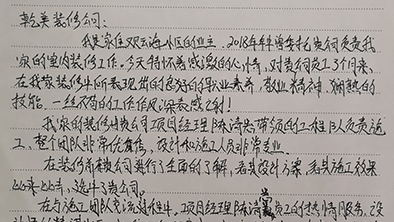 乾美装修公司:
我是家住观云海小区的业主,2018年年曾委托贵公司负责我
家的室内装修工作。今天特怀着感激的心情,对贵公司员工3个月来,
在我家装修中所表现出的良好的职业素养、敬业精神、娴熟的
技能、一丝不苟的工作作风深表感谢!
我家的装修由贵公司项目经理陈清 带领的工程队负责施
工,整个团队非常优秀,设计和施工人员非常专业。
在装修前我公司进行了全面的了解,看其设计方案,看其施工效果
选中了贵公司。
在与施工团队交流过程中,项目经理陈清 员工的热情服务,设